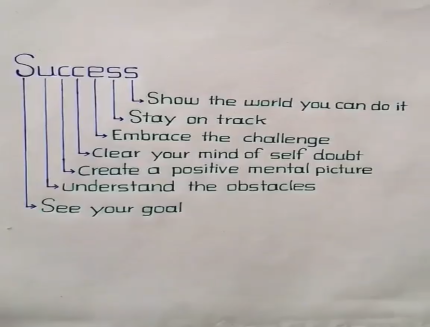 Success
Show the world you can do it
Stay on track
Embrace the challenge
Clear your mind of self doubt
Create a positive mental picture
Understand the obstacles
See your goal